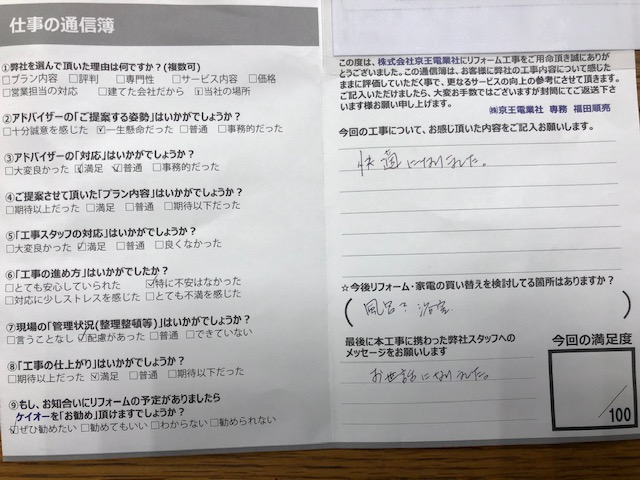 仕事の通信簿
①弊社を選んで頂いた理由は何ですか?(複数可)
□プラン内容 □評判 □専門性 □サービス内容 □価格
□営業担当の対応 □建てた会社だから □当社の場所
②アドバイザーの「ご提案する姿勢」はいかがでしょうか?
□十分誠意を感じた ☑一生懸命だった □普通 □事務的だった
③アドバイザーの「対応」はいかがでしょうか?
□大変良かった ☑満足 ☑普通 □事務的だった
④ご提案させて頂いた「プラン内容」はいかがでしょうか?
□期待以上だった □満足 □普通 □期待以下だった
⑤「工事スタッフの対応」はいかがでしょうか?
□大変良かった ☑満足 □普通 □良くなかった
⑥「工事の進め方」はいかがでしたか?
□とても安心していられた ☑特に不安はなかった
□対応に少しストレスを感じた □とても不満を感じた
⑦現場の「管理状況(整理整頓等)」はいかがでしょうか?
□言うことなし ☑配慮があった □普通 □できていない
⑧「工事の仕上がり」はいかがでしょうか?
□期待以上だった ☑満足 □普通 □期待以下だった
⑨もし、お知合いにリフォームの予定がありましたら
ケイオーを「お勧め」頂けますでしょうか?
☑ぜひ勧めたい □勧めてもいい □わからない □勧められない
この度は、株式会社京王電業社にリフォーム工事をご用命頂き誠にありが
とうございました。この通信簿は、お客様に弊社の工事内容について感じた
ままに評価していただく事で、更なるサービスの向上の参考にさせて頂きます。
ご記入いただけましたら、大変お手数ではございますが封筒にてご返送下さ
います様お願い申し上げます。
㈱京王電業社 専務 福田順亮
今回の工事について、お感じ頂いた内容をご記入お願いします。
快適になりました。
☆今後リフォーム・家電の買い替えを検討してる箇所はありますか?
(風呂 浴室)
最後に本工事に携わった弊社スタッフへ
のメッセージをお願いします
お世話になりました。
今回の満足度
/100